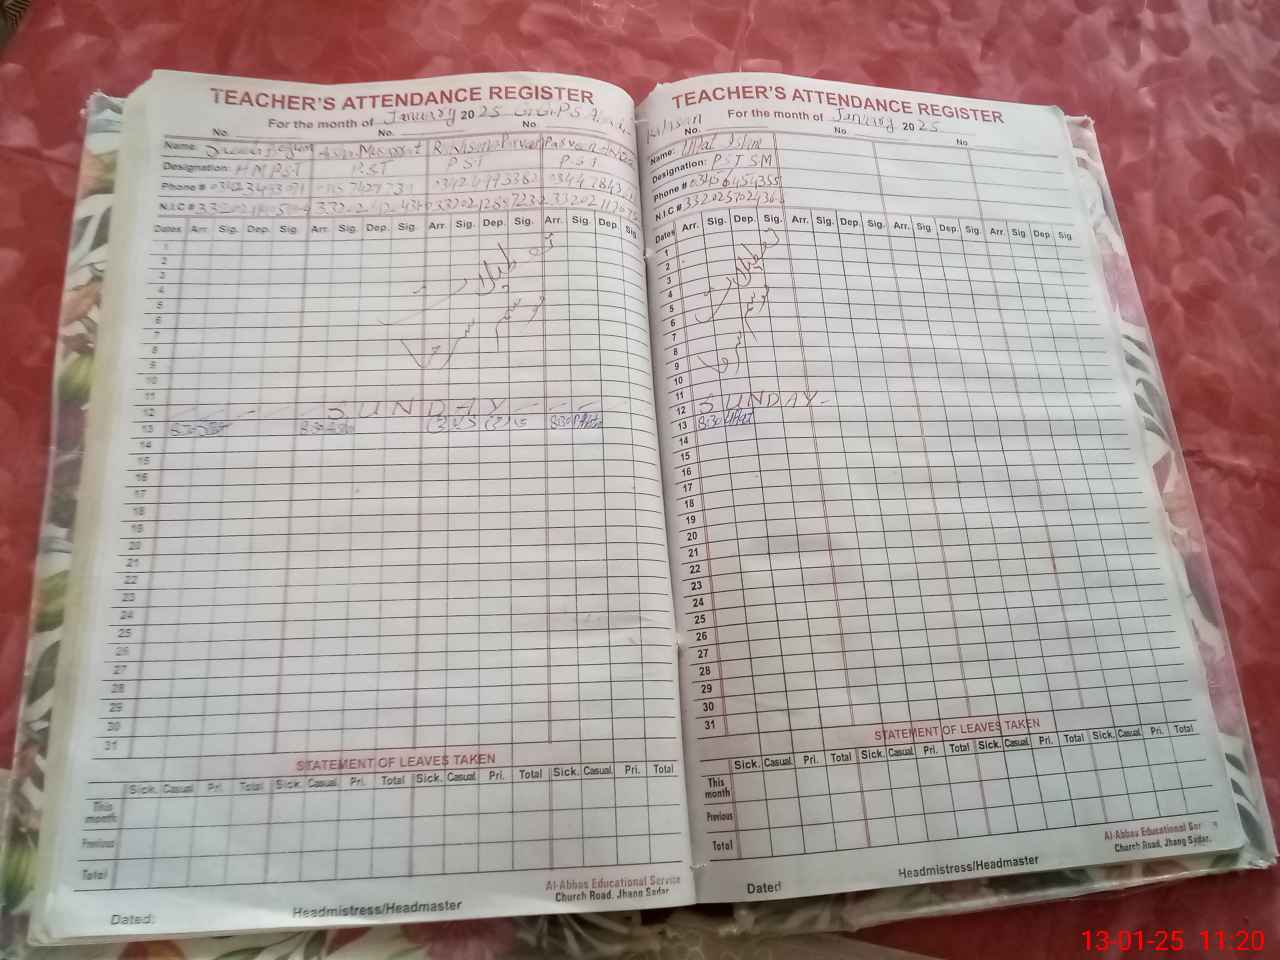 TEACHER'S ATTENDANCE REGISTER
For the month of January 2025 G.G.P.S
No. No. No
Name: Asia Musarrat Rukhsana Parveen Parveen
Designation: H M PST PST PST PST
Phone #
N.I.C #
Dates Arr. Sig. Dep. Sig. Arr. Sig. Dep. Sig. Arr. Sig. Dep. Sig. Arr. Sig. Dep. Sig.
1
2
3
4
5
6
7
8
9
10
11
12 SUNDAY
13 8:30 8:30 8:30
14
15
16
17
18
19
20
21
22
23
24
25
26
27
28
29
30
31
تعطیلات
موسم سرما
STATEMENT OF LEAVES TAKEN
Sick. Casual Pri. Total Sick. Casual Pri. Total Sick. Casual Pri. Total Sick. Casual. Pri. Total
This month
Previous
Total
Al-Abbas Educational Service
Church Road, Jhang Sadar.
Dated: Headmistress/Headmaster
TEACHER'S ATTENDANCE REGISTER
For the month of January 2025
No. No. No
Name:
Designation: PST SM
Phone # 03456454355
N.I.C #
Dates Arr. Sig. Dep. Sig. Arr. Sig. Dep. Sig. Arr. Sig. Dep. Sig. Arr. Sig. Dep. Sig.
1
2
3
4
5
6
7
8
9
10
11
12 SUNDAY
13 8:30
14
15
16
17
18
19
20
21
22
23
24
25
26
27
28
29
30
31
تعطیلات
موسم سرما
STATEMENT OF LEAVES TAKEN
Sick. Casual. Pri. Total Sick. Casual. Pri. Total Sick. Casual. Pri. Total Sick. Casual. Pri. Total
This month
Previous
Total
Al-Abbas Educational
Church Road, Jhang Sadar.
Dated Headmistress/Headmaster
13-01-25 11:20